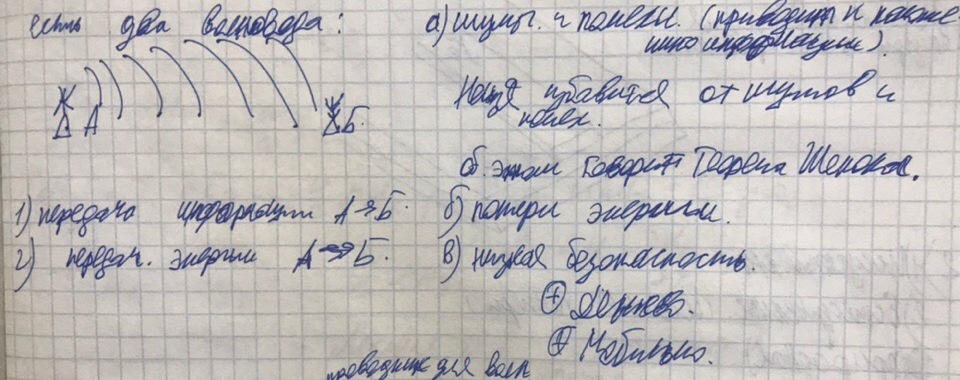 есть два волновода:
А
Б.
1) передача информации А→Б.
2) передач. энергии А→Б.
а) шумы. и помехи. (приводит к
информации).
Нельзя избавится от шумов и
помех.
об этом говорит Теорема Шенона.
б) потери энергии.
в) низкая безопасность.
⊕ Дешево.
⊕ Мобильно.
проводник для волн